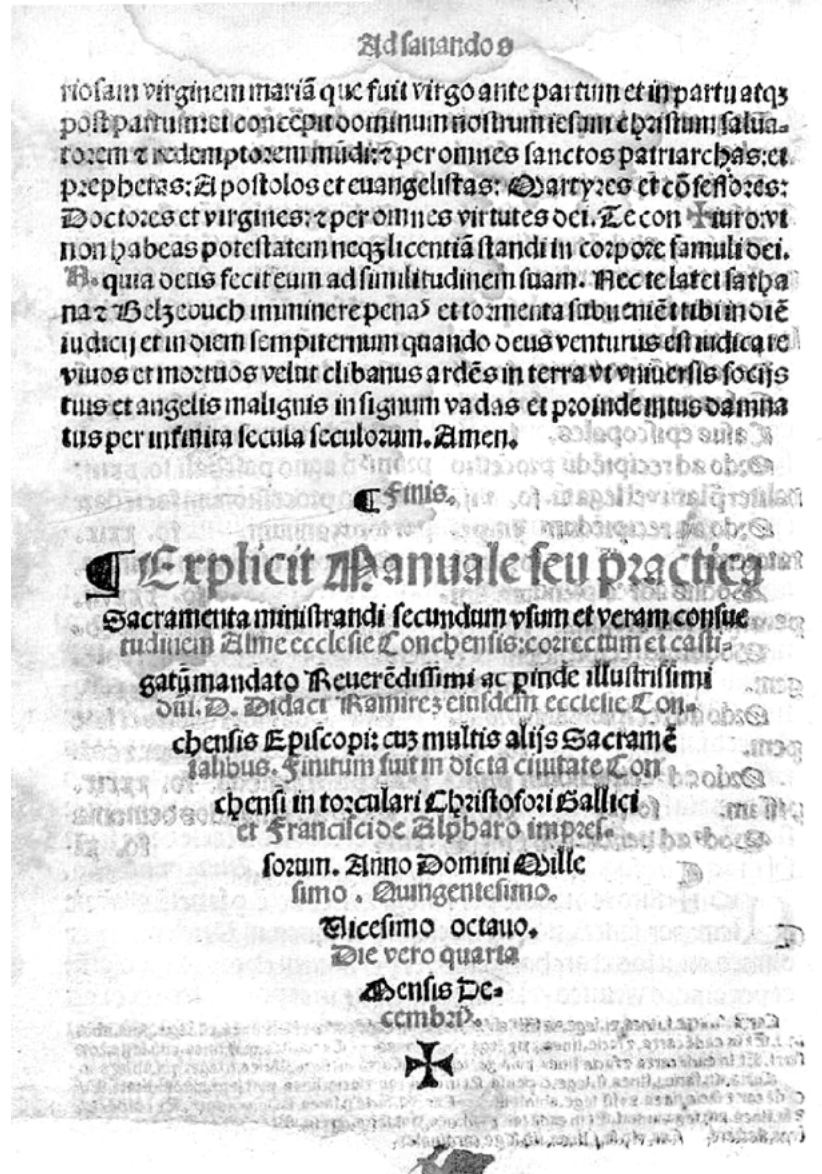 Ad sanandos
riosam virginem mariã que fuit virgo ante partum et in partu atqꝫ
post partum: et concepit dominum nostrum iesum christum salua-
torem ⁊ redemptorem mũdi: ⁊ per omnes sanctos patriarchas: et
prephetas: Apostolos et euangelistas: Martyres et cõfessores:
Doctores et virgines: ⁊ per omnes virtutes dei. Te con ✠ iuro: vt
non habeas potestatem neqꝫ licentiã standi in corpore famuli dei.
N. quia deus fecit eum ad similitudinem suam. Nec te latet satha
na ⁊ Belzebuch imminere penas et tormenta subueniẽt tibi in diẽ
iudicij et in diem sempiternum quando deus venturus est iudicare
viuos et mortuos velut clibanus ardẽs in terra vt vniuersis socijs
tuis et angelis malignis in signum vadas et proinde intus damna
tus per infinita secula seculorum. Amen.
¶ Finis.
¶ Explicit Manuale seu practica
Sacramenta ministrandi secundum vsum et veram consue
tudinem Alme ecclesie Conchensis: correctum et casti-
gatũ mandato Reuerẽdissimi ac ꝓinde illustrissimi
dñi. D. Didaci Ramirez eiusdem ecclesie Con-
chensis Episcopi: cuꝫ multis alijs Sacramẽ
talibus. Finitum fuit in dicta ciuitate Con
chensi in torculari Christofori Gallici
et Francisci de Alpharo impres-
sorum. Anno Domini Mille
simo. Quingentesimo.
Vicesimo octauo.
Die vero quarta
Mensis De-
cembris.